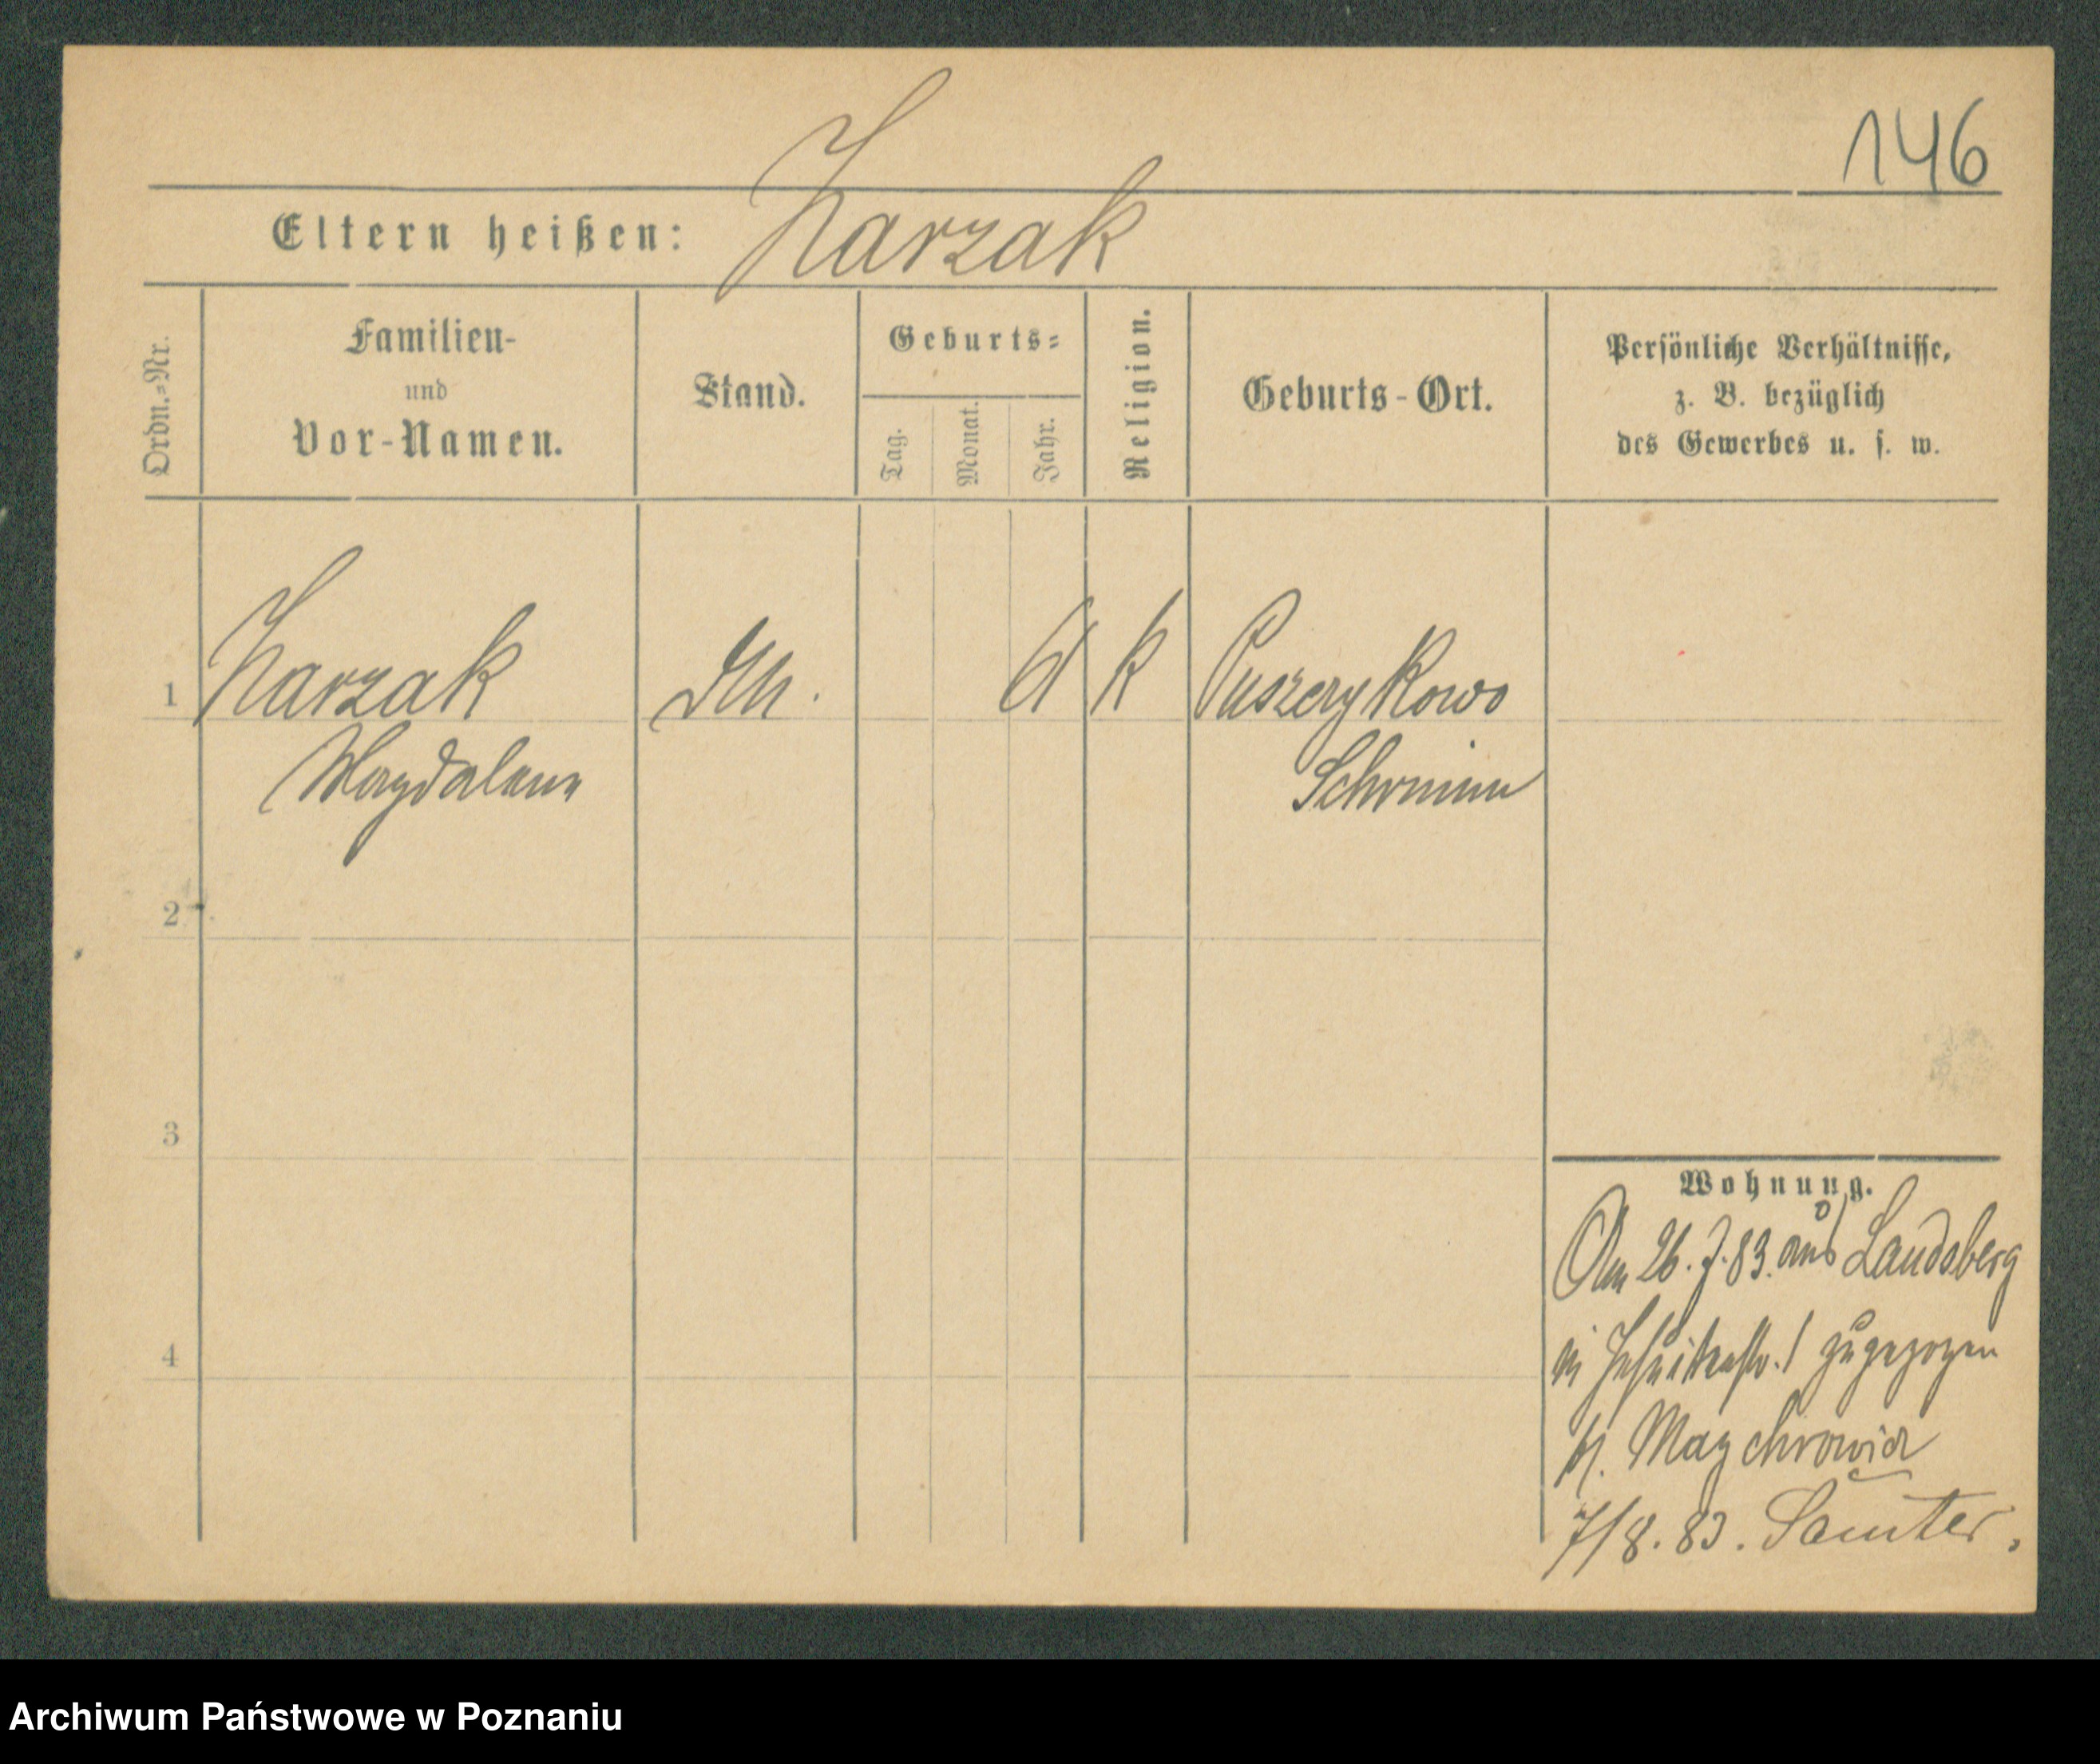 146
Eltern heißen: Karzak
Ordn.=Nr.
Familien-
und
Vor-Namen.
Stand.
Geburts=
Tag.
Monat.
Jahr.
Religion.
Geburts-Ort.
Persönliche Verhältnisse,
z. B. bezüglich
des Gewerbes u. s. w.
1 Karzak 61 k Puszczykowo
Magdalena Schrimm
2
3
4
Wohnung.
Am 26. 7. 83. aus Landsberg
in Jesuitenstr. 1 zugezogen
7/8. 83. Samter.
Archiwum Państwowe w Poznaniu